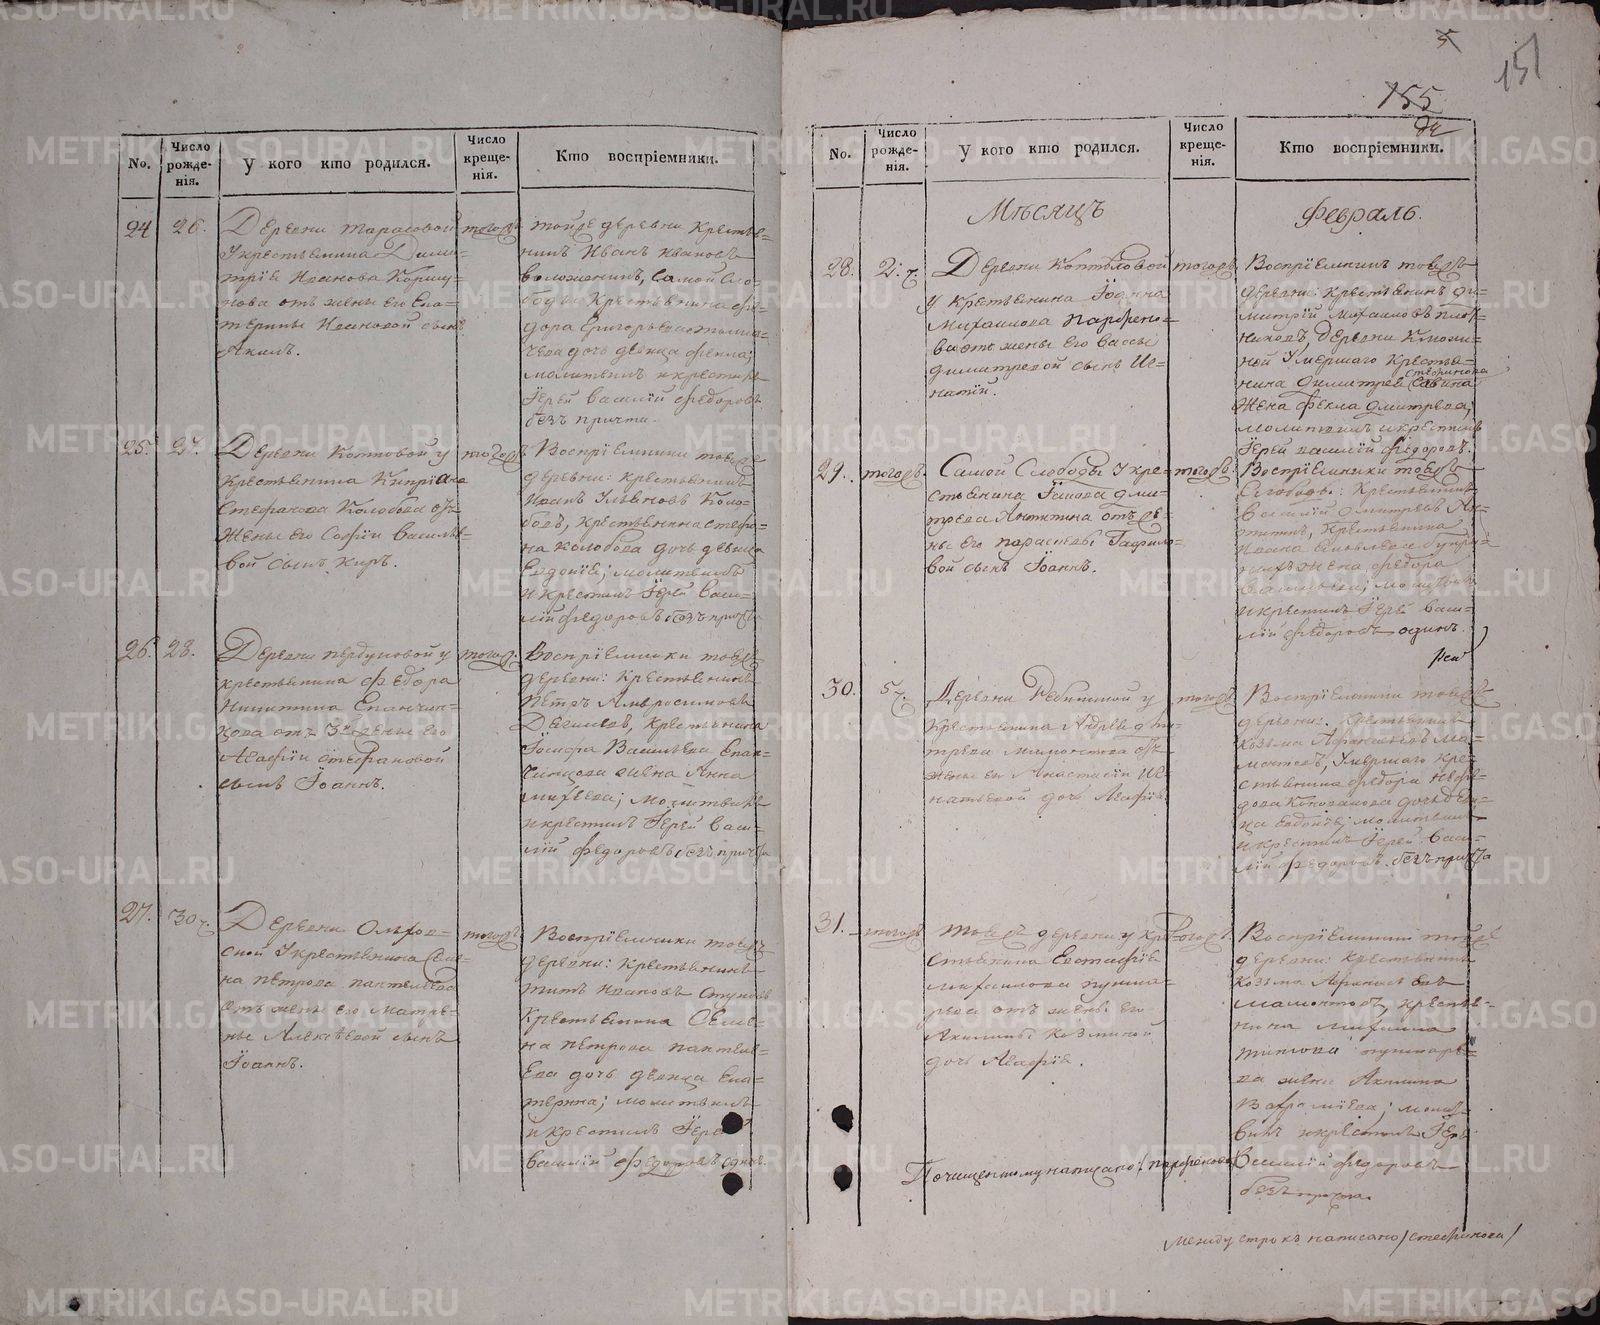 No.
Число рожде-нія.
У кого кто родился.
Число креще-нія.
Кто воспріемники.
24
26.
Деревни Тарасовой
У крестьянина Дими-
трія Иванова Коршу-
нова отъ жены его Ека-
терины Ивановой сынъ
Акимъ.
тогожъ
тойже деревни крестья-
нинъ Иванъ Ивановъ
Воложанинъ, самой Сло-
боды крестьянина Фе-
дора Григорьева
дочь девица Фекла;
молитвилъ и крестилъ
Іерей Василій Федоровъ
безъ причта.
25.
27.
Деревни Коптовой у
крестьянина Кипріана
Стефанова Колобова отъ
жены его Софіи Василье-
вой сынъ Киръ.
тогожъ
Воспріемники тояже
деревни: крестьянинъ
Иванъ Ульяновъ Коло-
бовъ, крестьянина Стефа-
на Колобова дочь девица
Евдокія; молитвилъ
и крестилъ Іерей Васи-
лій Федоровъ безъ причта
26.
28.
Деревни Пердуновой у
крестьянина Федора
Никитина Епанчин-
цова отъ жены его
Агафіи Стефановой
сынъ Іоаннъ.
тогож.
Воспріемники тояже
деревни: крестьянинъ
Петръ Амвросимовъ
крестьянина
Іосифа Васильева Епан-
чинцова жена Анна
Михеева; молитвилъ
и крестилъ Іерей Васи-
лій Федоровъ безъ причта
27.
30
Деревни Ольхов-
ской У крестьянина Семе-
на Петрова Пантелеева
отъ жены его Матре-
ны Алексѣевой сынъ
Іоаннъ.
тогожъ
Воспріемники тояжъ
деревни: крестьянинъ
Титъ Ивановъ
крестьянина Семе-
на Петрова Пантеле-
ева дочь девица Ека-
терина; молитвилъ
и крестилъ Іерей
Василій Федоровъ одинъ.
5
151
155
No.
Число рожде-нія.
У кого кто родился.
Число креще-нія.
Кто воспріемники.
Мѣсяцъ
Февраль.
28.
2.
Деревни Коптѣловой
у крестьянина Іоанна
Михаилова Парфено-
ва отъ жены его Вассы
Димитревой сынъ Иг-
натій.
тогожъ
Воспріемники тояжъ
деревни: крестьянинъ Ди-
митрій Михаиловъ Плот-
никовъ, деревни
умершаго крестья-
нина Димитрея Савина
Стефанова
жена Фекла Дмитрева;
молитвилъ и крестилъ
Іерей Василій Федоровъ.
29.
тогожъ
Самой Слободы У кре-
стьянина Іакова Дми-
трева Аникина отъ же-
ны его Парасковьи Гаврило-
вой сынъ Іоаннъ.
тогожъ.
Воспріемники тояжъ
Слободы: крестьянинъ
Василій Дмитревъ
крестьянина
Ивана Яковлева
жена Федора
молитвилъ
и крестилъ Іерей Васи-
лій Федоровъ одинъ.
30.
5
Деревни Рѣбининой у
крестьянина Андрея Дми-
трева Мамонтова отъ
жены ея Анастасіи Иг-
натьевой дочь Агафія.
тогожъ
Воспріемники тояже
деревни: крестьянинъ
Козьма Афанасьевъ Ма-
монтовъ, умершаго кре-
стьянина Федора
Коновалова дочь деви-
ца Евдокія; молитвилъ
и крестилъ Іерей Васи-
лій Федоровъ безъ причта
31.
тогожъ
тояжъ деревни у кре-
стьянина Евстафія
Михаилова Пушка-
рева отъ жены его
Акилины Козминой
дочь Агафія.
тогожъ.
Воспріемники тояже
деревни: крестьянинъ
Козьма Афанасьевъ
Мамонтовъ, крестья-
нина Михаила
Пушкаре-
ва жена Акилина
Варфоломеева; молит-
вилъ и крестилъ Іерей
Василій Федоровъ
безъ причта.
По чищенному написано / Парфенова
Между строкъ написано / Стефанова /
METRIKI.GASO-URAL.RU